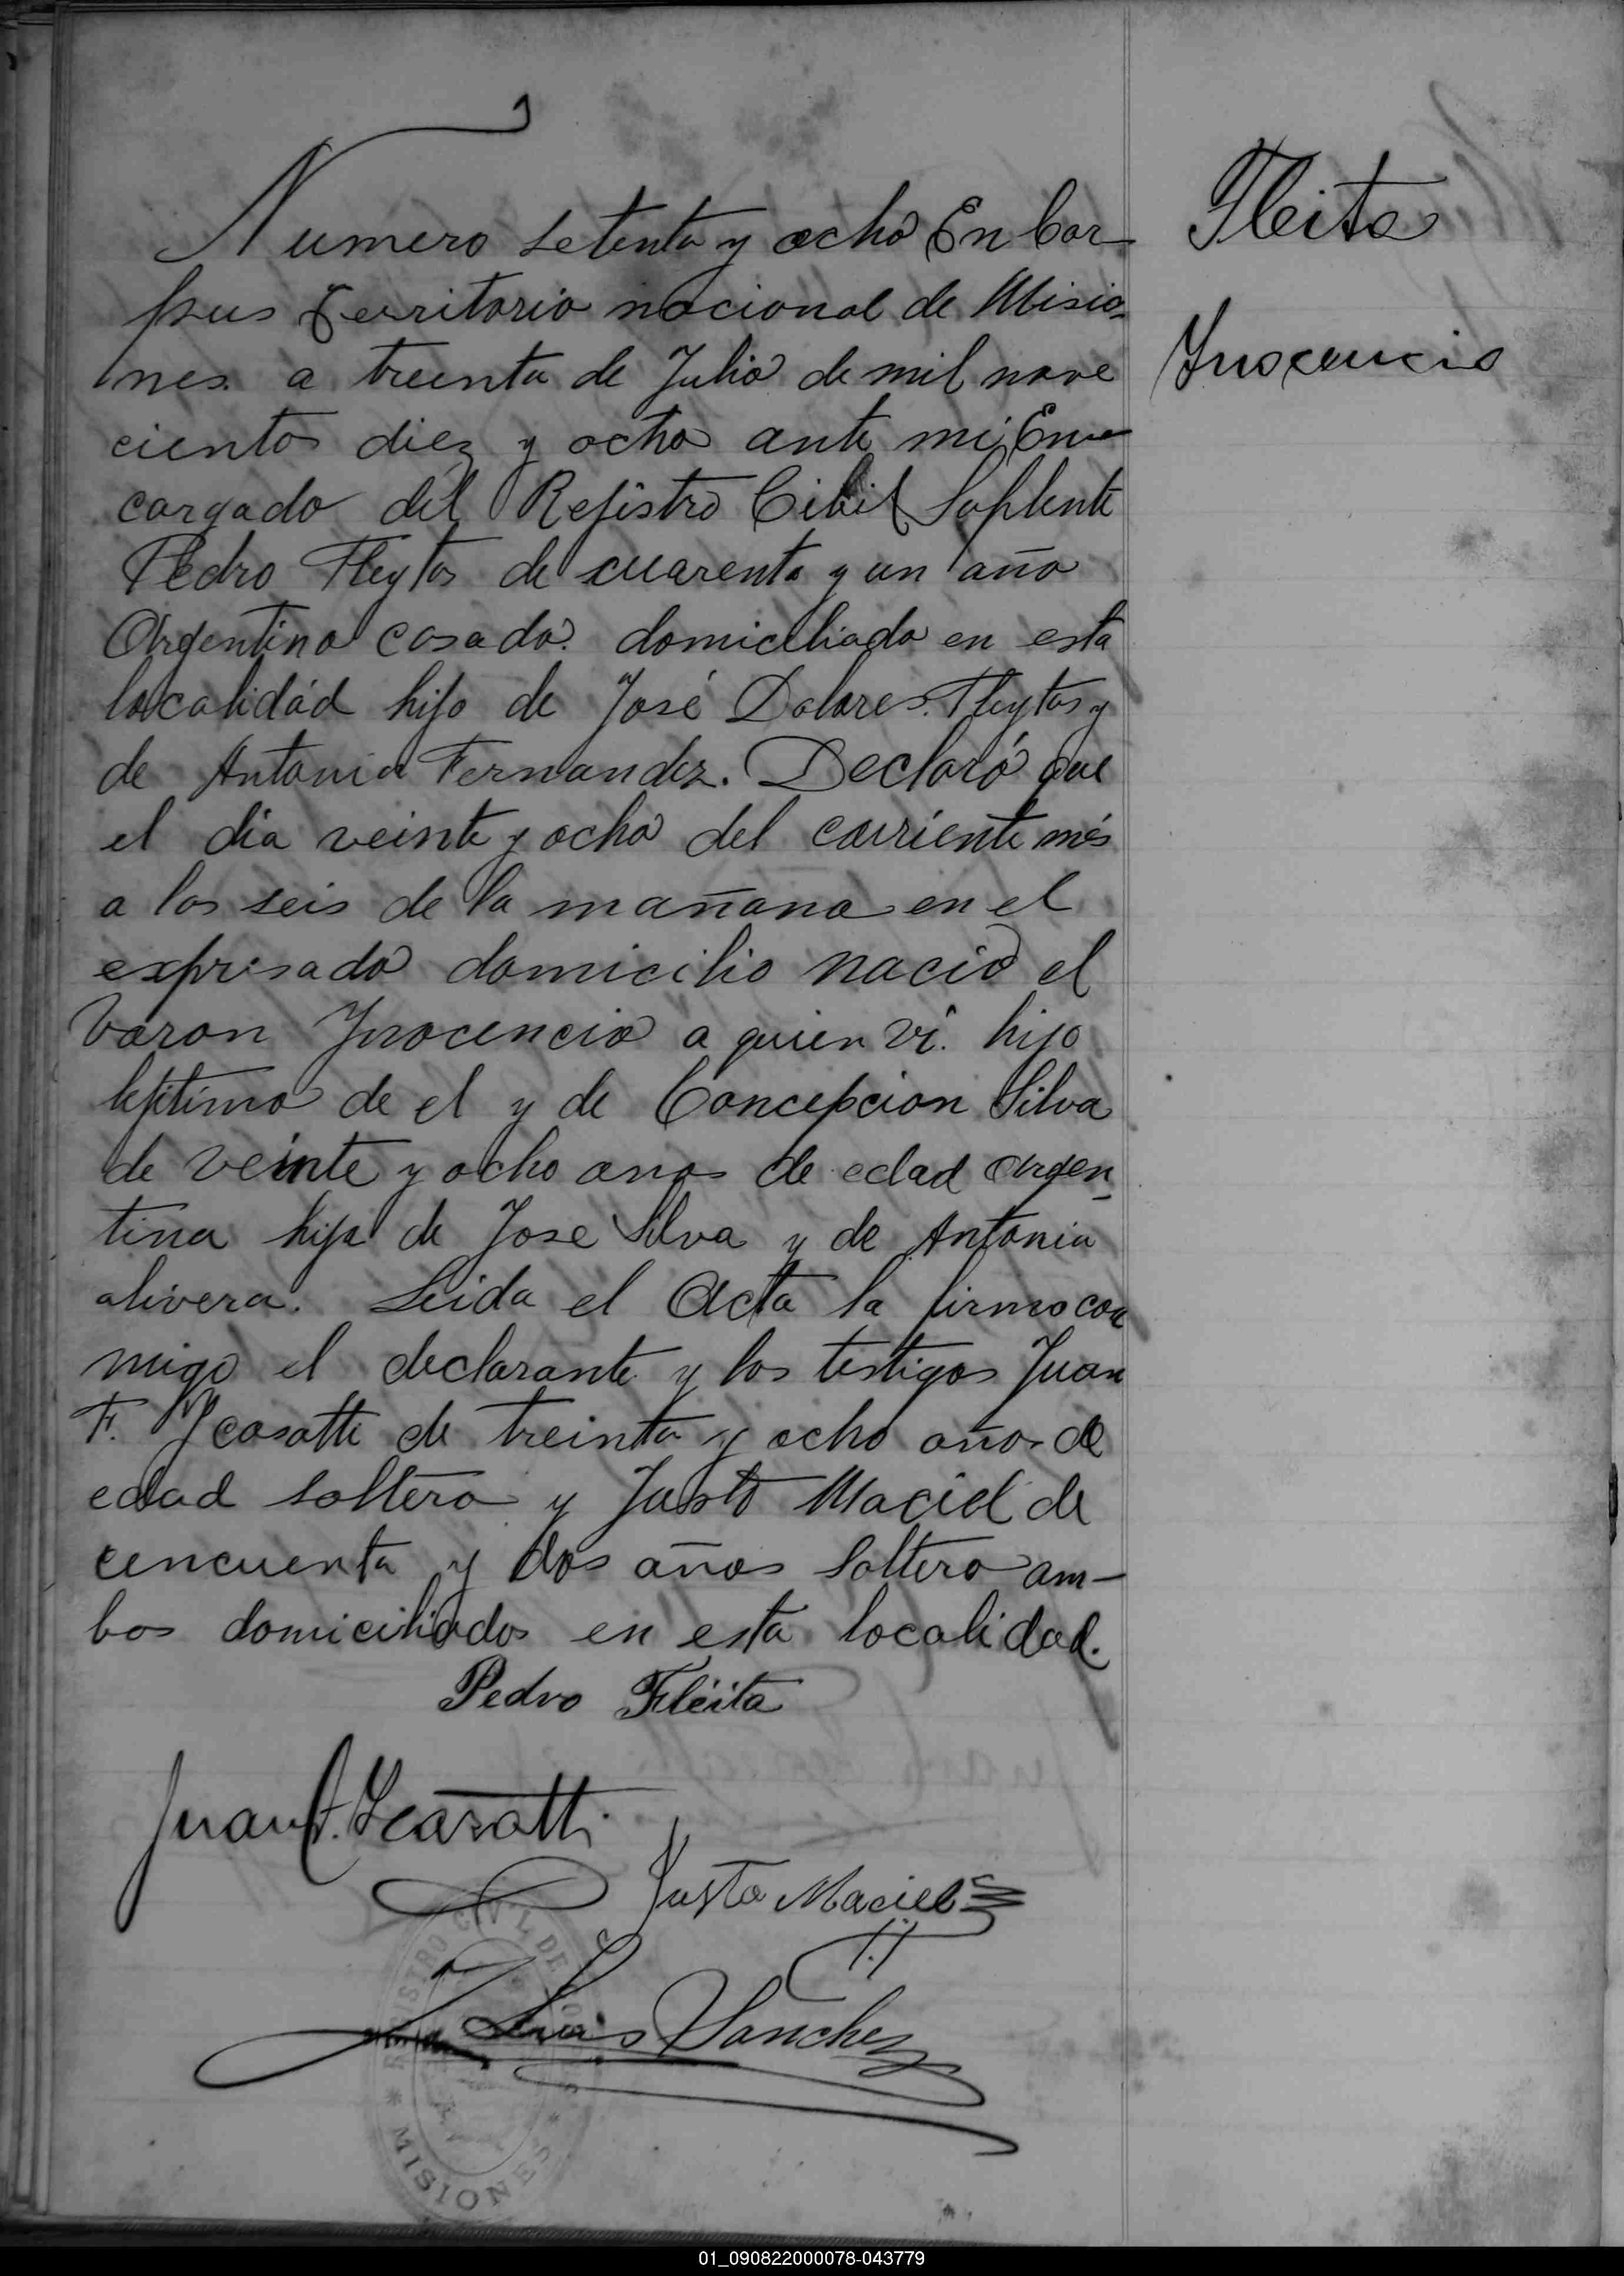 Numero setenta y ocho En Cor-
pus Territorio nacional de Misio-
nes. a treenta de Julio de mil nove
cientos diez y ocho ante mi En-
cargado del Rejistro Cibil Soplente
Pedro Fleytas de cuarenta y un año
Argentino casado. domiciliado en esta
localidád hijo de José Dolores Fleytas y
de Antonia Fernandez. Declaró que
el dia veinte y ocho del corriente més
a las seis de la mañana en el
expresado domicilio nació el
varon Inocencio a quien vi. hijo
lejitimo de el y de Concepcion Silva
de veinte y ocho anos de edad argen-
tina hija de Jose Silva y de Antonia
olivera. Leida el Acta la firmo con
migo el declarante y los testigos Juan
F. de treinta y ocho años de
edad soltero y Justo Maciel de
cencuenta y dos años soltero am-
bos domiciliados en esta localidad.
Pedro Fléita
Juan F.
Justo Maciel
Luis Sanchez
REGISTRO CIVIL DE
* MISIONES *
Fleita
Inocencio
01_090822000078-043779